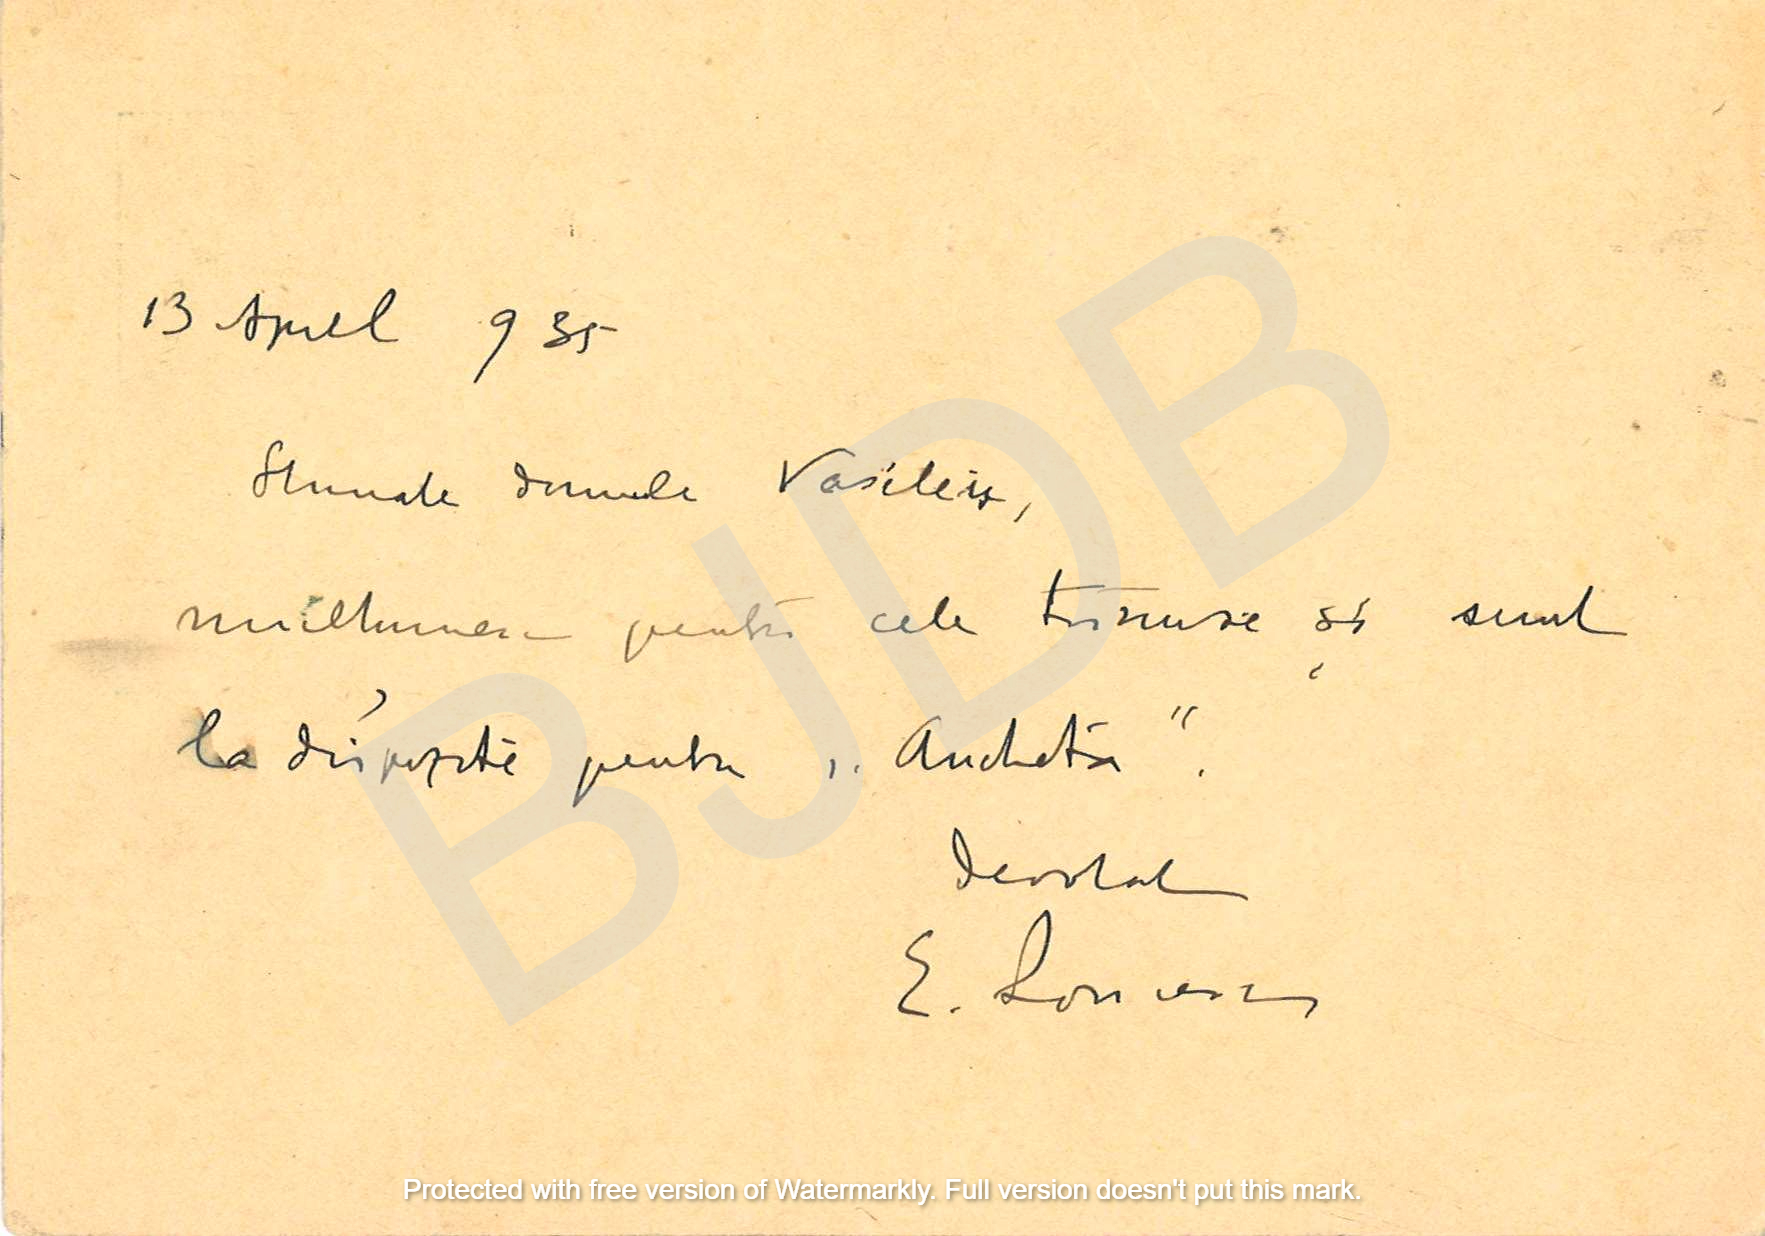 13 April 935
Stimate domnule Vasileiu,
mulțumesc pentru cele trimise și sunt
la dispoziție pentru „Anchetă”.
Devotat
E. Lovinescu
BJDB
Protected with free version of Watermarkly. Full version doesn't put this mark.